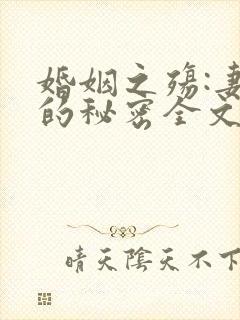 婚姻之殇:妻
的秘密全文
晴天陰天不下